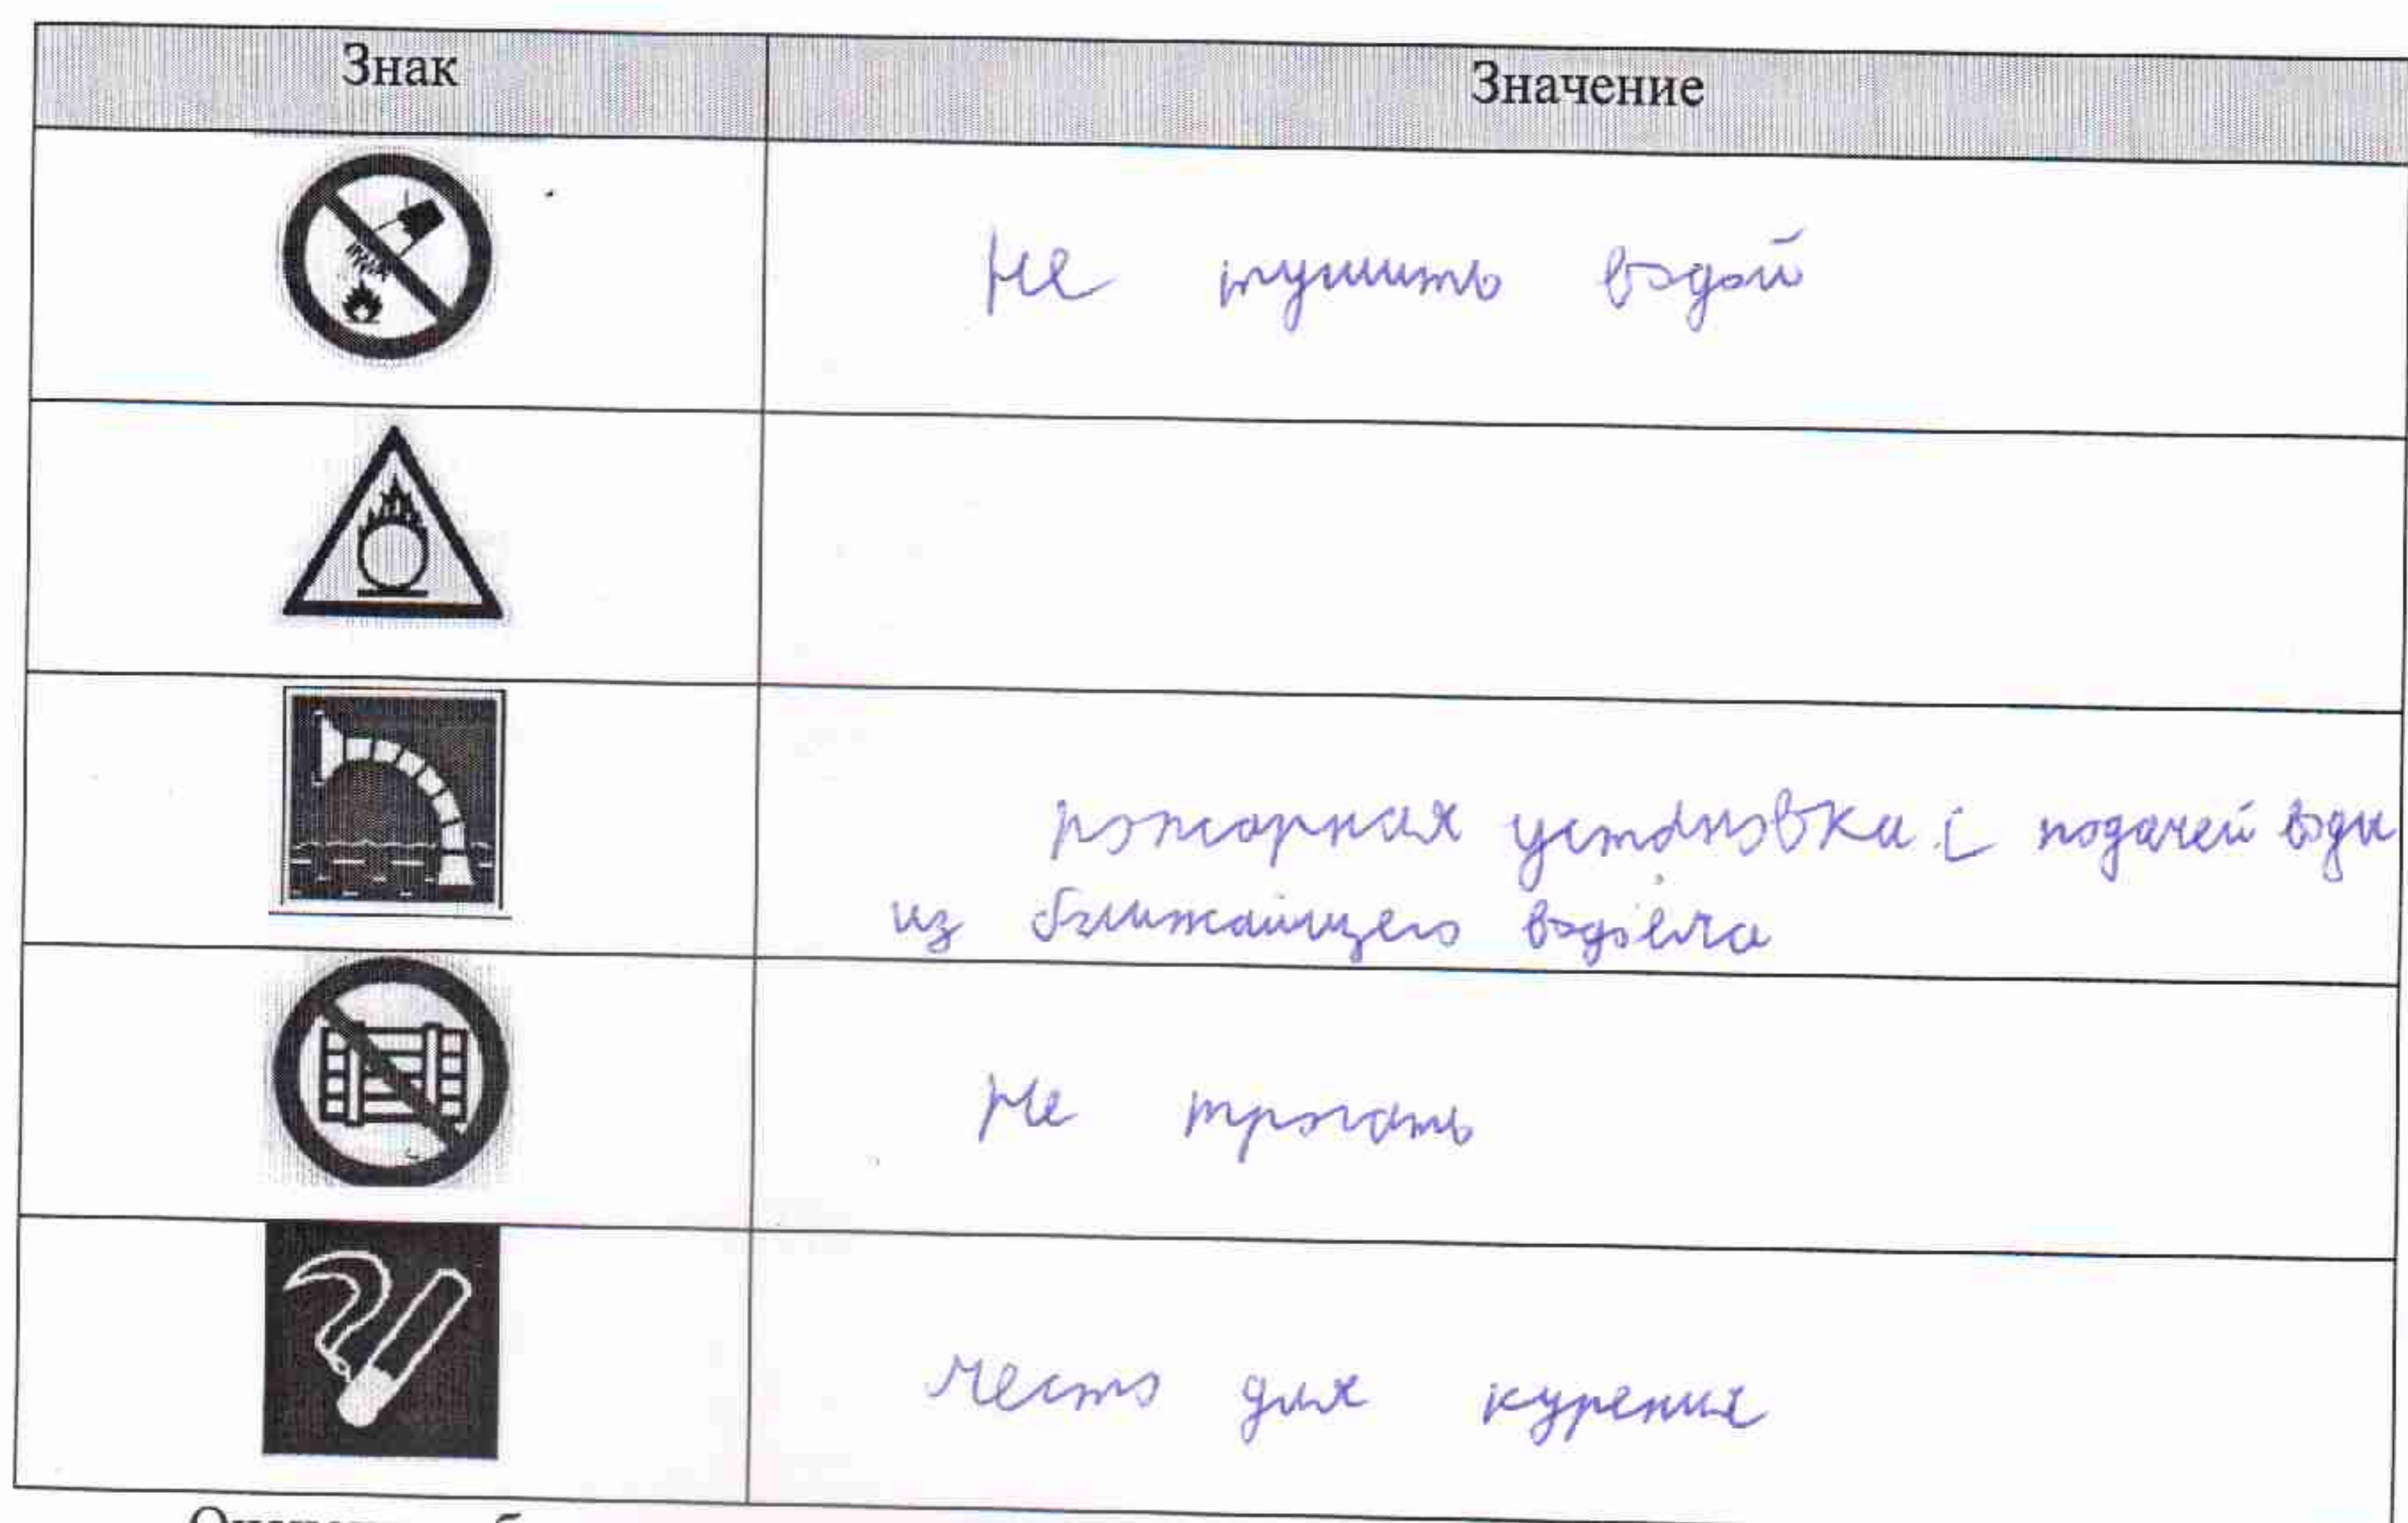 Знак
Значение
не тушить водой
пожарная установка с подачей воды
из ближайшего водоёма
не трогать
место для курения